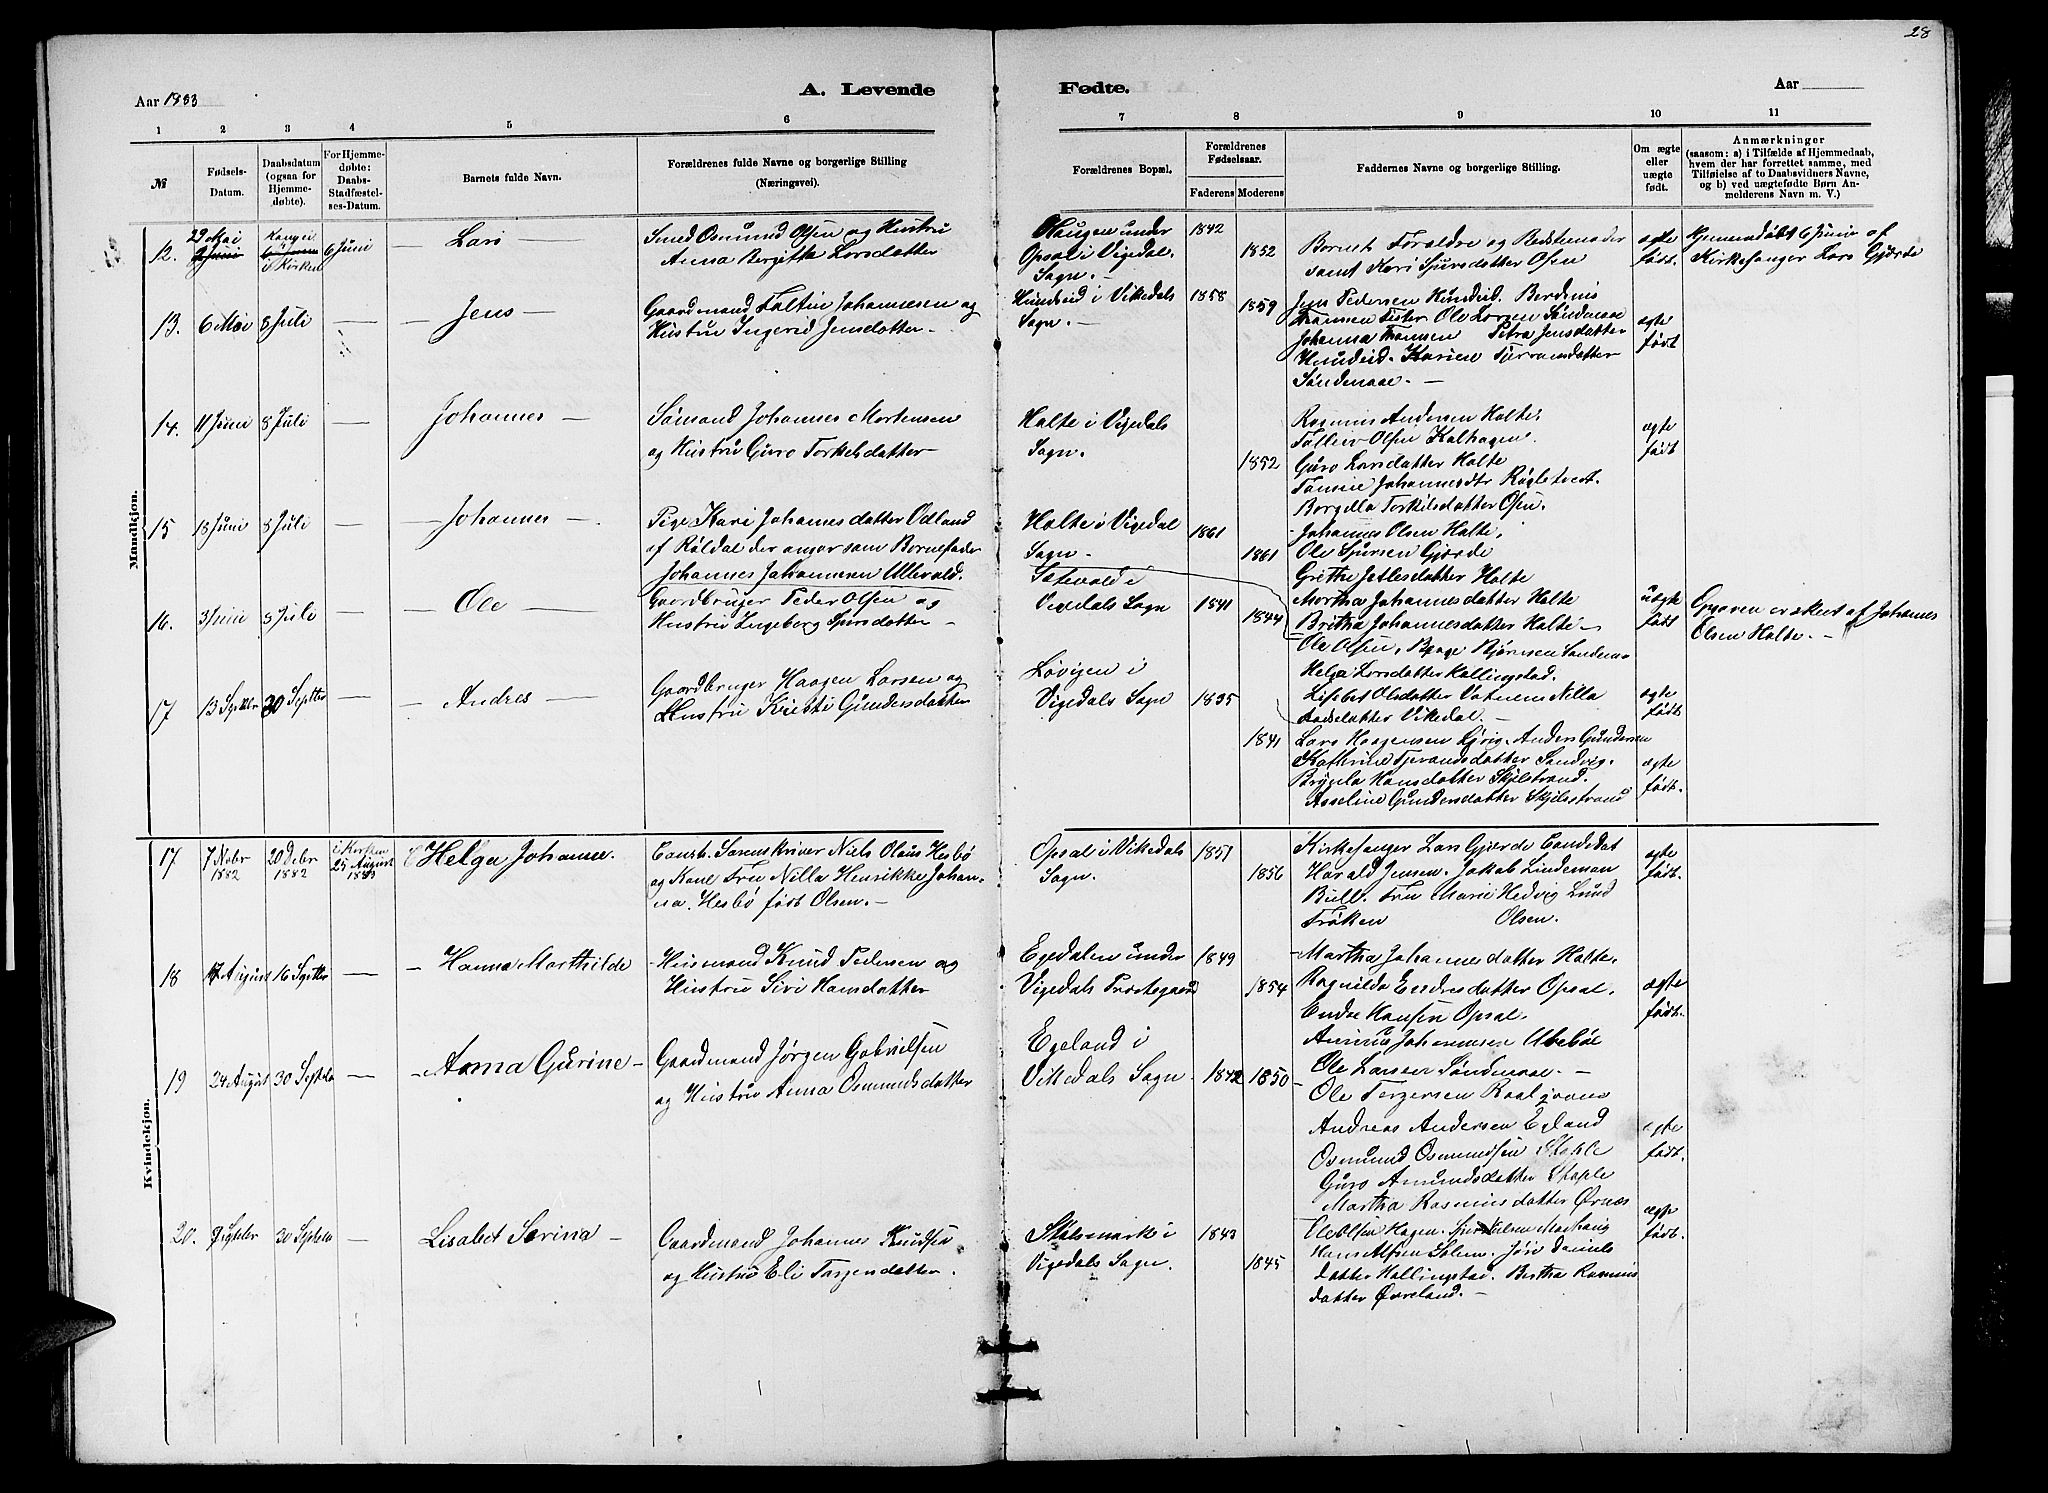 28
Aar 1883
A. Levende
Fødte.
Aar
1 2 3 4 5 6 7 8 9 10 11
№
Fødsels-Datum.
Daabsdatum (ogsaa for Hjemmedøbte).
For Hjemmedøbte: Daabs-Stadfæstelses-Datum.
Barnets fulde Navn.
Forældrenes fulde Navne og borgerlige Stilling
(Næringsvei).
Forældrenes Bopæl.
Forældrenes Fødselsaar.
Faderens Moderens
Faddernes Navne og borgerlige Stilling.
Om ægte eller uægte født.
Anmærkninger
(saasom: a) i Tilfælde af Hjemmedaab,
hvem der har forrettet samme, med
Tilføielse af to Daabsvidners Navne,
og b) ved uægtefødte Børn Anmelderens Navn m. V.)
Mandkjøn.
12. 29 Mai i Kirken 6 Juni — Lars —
Smed Osmund Olsen og Hustru
Anna Bergitte Larsdatter
Haugen under
Opsal i Vigedal
Sogn. —
1842
1852
Barnets Forældre og Bedstemoder
samt Kari Sjursdatter Olsen
ægte
født.
hjemmedøbt 6 Juni af
Kirkesanger Lars Gjerde
13. 6 Mai 8 Juli — — Jens —
Gaardmand Faltin Johannesen og
Hustru Ingerid Jensdatter —
Hundseid i Vikedals
Sogn. —
1858
1859
Jens Pedersen Hundseid. Berdinis
Tramsen Ole Larsen Søndenaae
Johanna Petra Jensdatter
Hundseid. Karine
Søndenaae. —
ægte
født
14. 11 Juni 8 Juli — Johannes —
Sømand Johannes Mortensen
og Hustru Guro Torkelsdatter —
Halte i Vigedals
Sogn.
1852
Rasmus Andersen Halte.
Tallev Olsen Kalhagen.
Guro Larsdatter Halte
Johannesdtr
Borgilla Torkilsdatter Olsen.
ægte
født
15 18 Juni 8 Juli — — Johannes —
Pige Kari Johannesdatter Odland
af Røldal der angav som Barnefader
Johannes Johannesen Ullevold.
Halte i Vigedal
Sogn —
1861
1861
Johannes Olsen Halte,
Ole Sjursen Gjerde
Grithe Jetlesdatter Halte
Martha Johannesdatter Halte
Britha Johannesdatter Halte —
uægte
født
Opgaven er skeet af Johannes
Olsen Halte. —
16. 3 Juni 8 Juli — — Ole —
Gaardbruger Peder Olsen og
Hustru Ingeborg Sjursdatter —
Sætevold i
Vigedals Sogn
1841
1844
Ole Olsen, Bjørnsen
Helga Larsdatter Hallingstad.
Lisebet Olsdatter Nilla
Vikedal. —
ægte
født
17 13 Septbr 30 Septbr — — Andres —
Gaardbruger Haagen Larsen og
Hustru Kristi Gundersdatter
Løvigen i
Vigedals Sogn
1835
1841
Lars Haagensen Anders Gundersen
Kathrine Tjerandsdatter Sandvig.
Hansdatter Skjelstrand.
Asseline Gundersdatter Skjelstrand
ægte
født.
Kvindekjøn.
17 7 Nobr 1882 20 Debr 1882 i Kirken 25 August 1883 Helga Johanne.
Const. Sorenskriver Niels Olaus Hesbø
og Kone Fru Nilla Henrikke Johanna
Hesbø født Olsen. —
Opsal i Vikedals
Sogn.
1851
1856
Kirkesanger Lars Gjerde Candidat
Harald Jensen. Jakob Lindeman
Bull. Fru Marie Hedvig Lund
Frøken Olsen.
ægte
født.
18 17 August 16 Septbr — — Hanna Marthilde
Husmand Knud Pedersen og
Hustru Siri Hansdatter
Egedalen under
Vigedals Præstegaard
1849
1854
Martha Johannesdatter Halte.
Ragnilda Endresdatter Opsal.
Endre Hansen Opsal.
Johannesen
ægte
født.
19 24 August 30 Septbr — — Anna Gurine —
Gaardmand Jørgen Gabrielsen
og Hustru Anna Osmundsdatter
Egeland i
Vikedals Sogn
1842
1850
Ole Larsen Søndenaae. —
Ole Torgersen
Andreas Andersen Egeland
Osmund Osmundsen Stople
Guro Amundsdatter Stople
Martha Rasmusdatter Ørnes
ægte
født.
20. 7 Septbr 30 Septbr Lisabet Serina —
Gaardmand Johannes Knudsen
og Hustru Eli
Stølsmark i
Vigedals Sogn.
1843
1845
Ole Olsen Hagen.
datter Hallingstad. Bertha Rasmus
datter Øvreland. —
ægte
født.